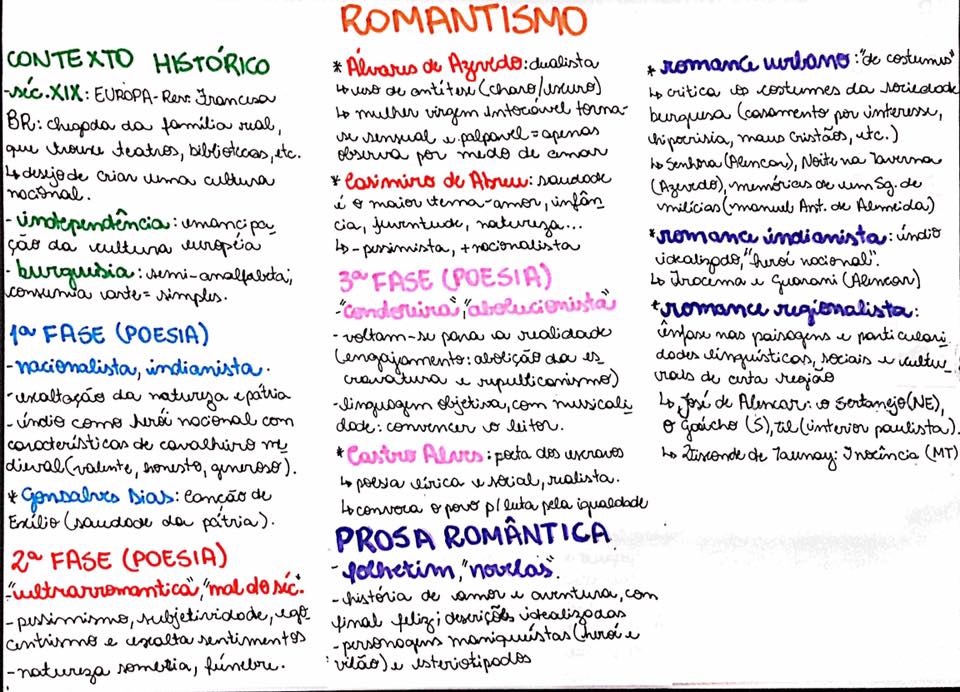 ROMANTISMO
CONTEXTO HISTÓRICO
-séc.XIX: EUROPA- Rev. Francesa
BR: chegada da família real,
que trouxe teatros, bibliotecas, etc.
↳ desejo de criar uma cultura
nacional.
- independência: emancipa
ção da cultura europeia
- burguesia: semi-analfabeta;
consumia arte = simples.
1ª FASE (POESIA)
-nacionalista, indianista.
-exaltação da natureza e pátria
-índio como herói nacional com
características de cavalheiro me
dieval (valente, honesto, generoso).
* Gonsalves Dias: Canção de
Exílio (saudade da pátria).
2ª FASE (POESIA)
-"ultrarromantica", "mal do séc."
- pessimismo, subjetividade, ego
centrismo e exalta sentimentos
-natureza sombria, fúnebre.
* Álvares de Azevedo: dualista
↳ uso de antítese (claro/escuro)
↳ mulher virgem intocável torna-
se sensual e palpável = apenas
observa por medo de amar
* Casimiro de Abreu: saudade
é o maior tema-amor, infân
cia, juventude, natureza...
↳ - pessimista, + nacionalista
3ª FASE (POESIA)
-"condoreira", "abolucionista"
-voltam-se para a realidade
(engajamento: abolição da es
cravatura e republicanismo)
-linguagem objetiva, com musicali
dade: convencer o leitor.
* Castro Alves: poeta dos escravos
↳ poesia lírica e social, realista.
↳ convoca o povo p/ luta pela igualdade
PROSA ROMÂNTICA
- folhetim, "novelas".
-história de amor e aventura, com
final feliz; descrições idealizadas
-personagens maniqueístas (herói e
vilão) e esteriotipados
* romance urbano: "de costumes"
↳ critica os costumes da sociedade
burguesa (casamento por interesse,
hipocrisia, maus cristãos, etc.)
↳ Senhora (Alencar), Noite na Taverna
(Azevedo), memórias de um Sg. de
milícias (manuel Ant. de Almeida)
* romance indianista: índio
idealizado, "herói nacional".
↳ Iracema e Guarani (Alencar)
* romance regionalista:
ênfase nas paisagens e particulari
dades linguísticas, sociais e cultu
rais de certa região
↳ José de Alencar: o Sertanejo (NE),
O Gaúcho (S), til (interior paulista).
↳ Visconde de Taunay: Inocência (MT)